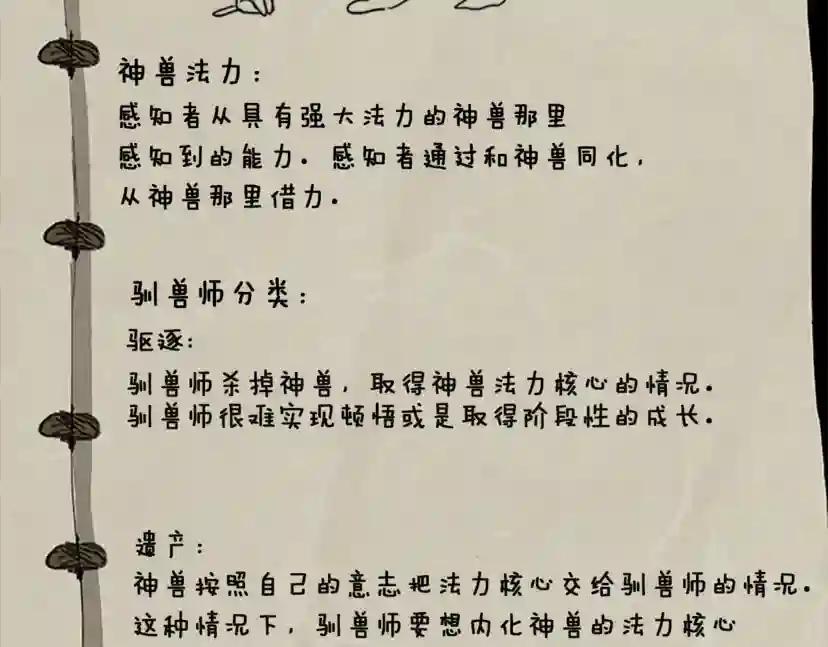 神兽法力：
感知者从具有强大法力的神兽那里
感知到的能力. 感知者通过和神兽同化,
从神兽那里借力.
驯兽师分类：
驱逐：
驯兽师杀掉神兽, 取得神兽法力核心的情况.
驯兽师很难实现顿悟或是取得阶段性的成长.
遗产：
神兽按照自己的意志把法力核心交给驯兽师的情况.
这种情况下, 驯兽师要想内化神兽的法力核心